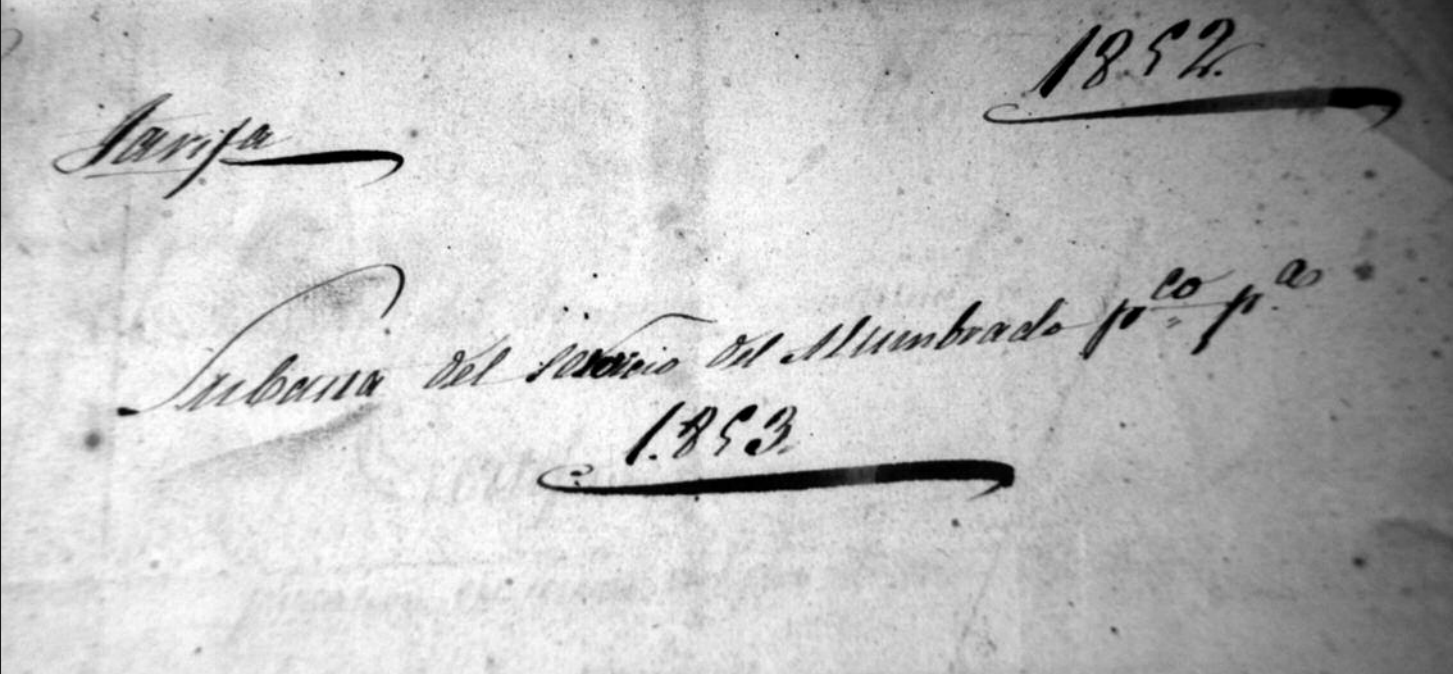 1852.
Tarifa
Subasta del servicio del Alumbrado pco pa
1.853.